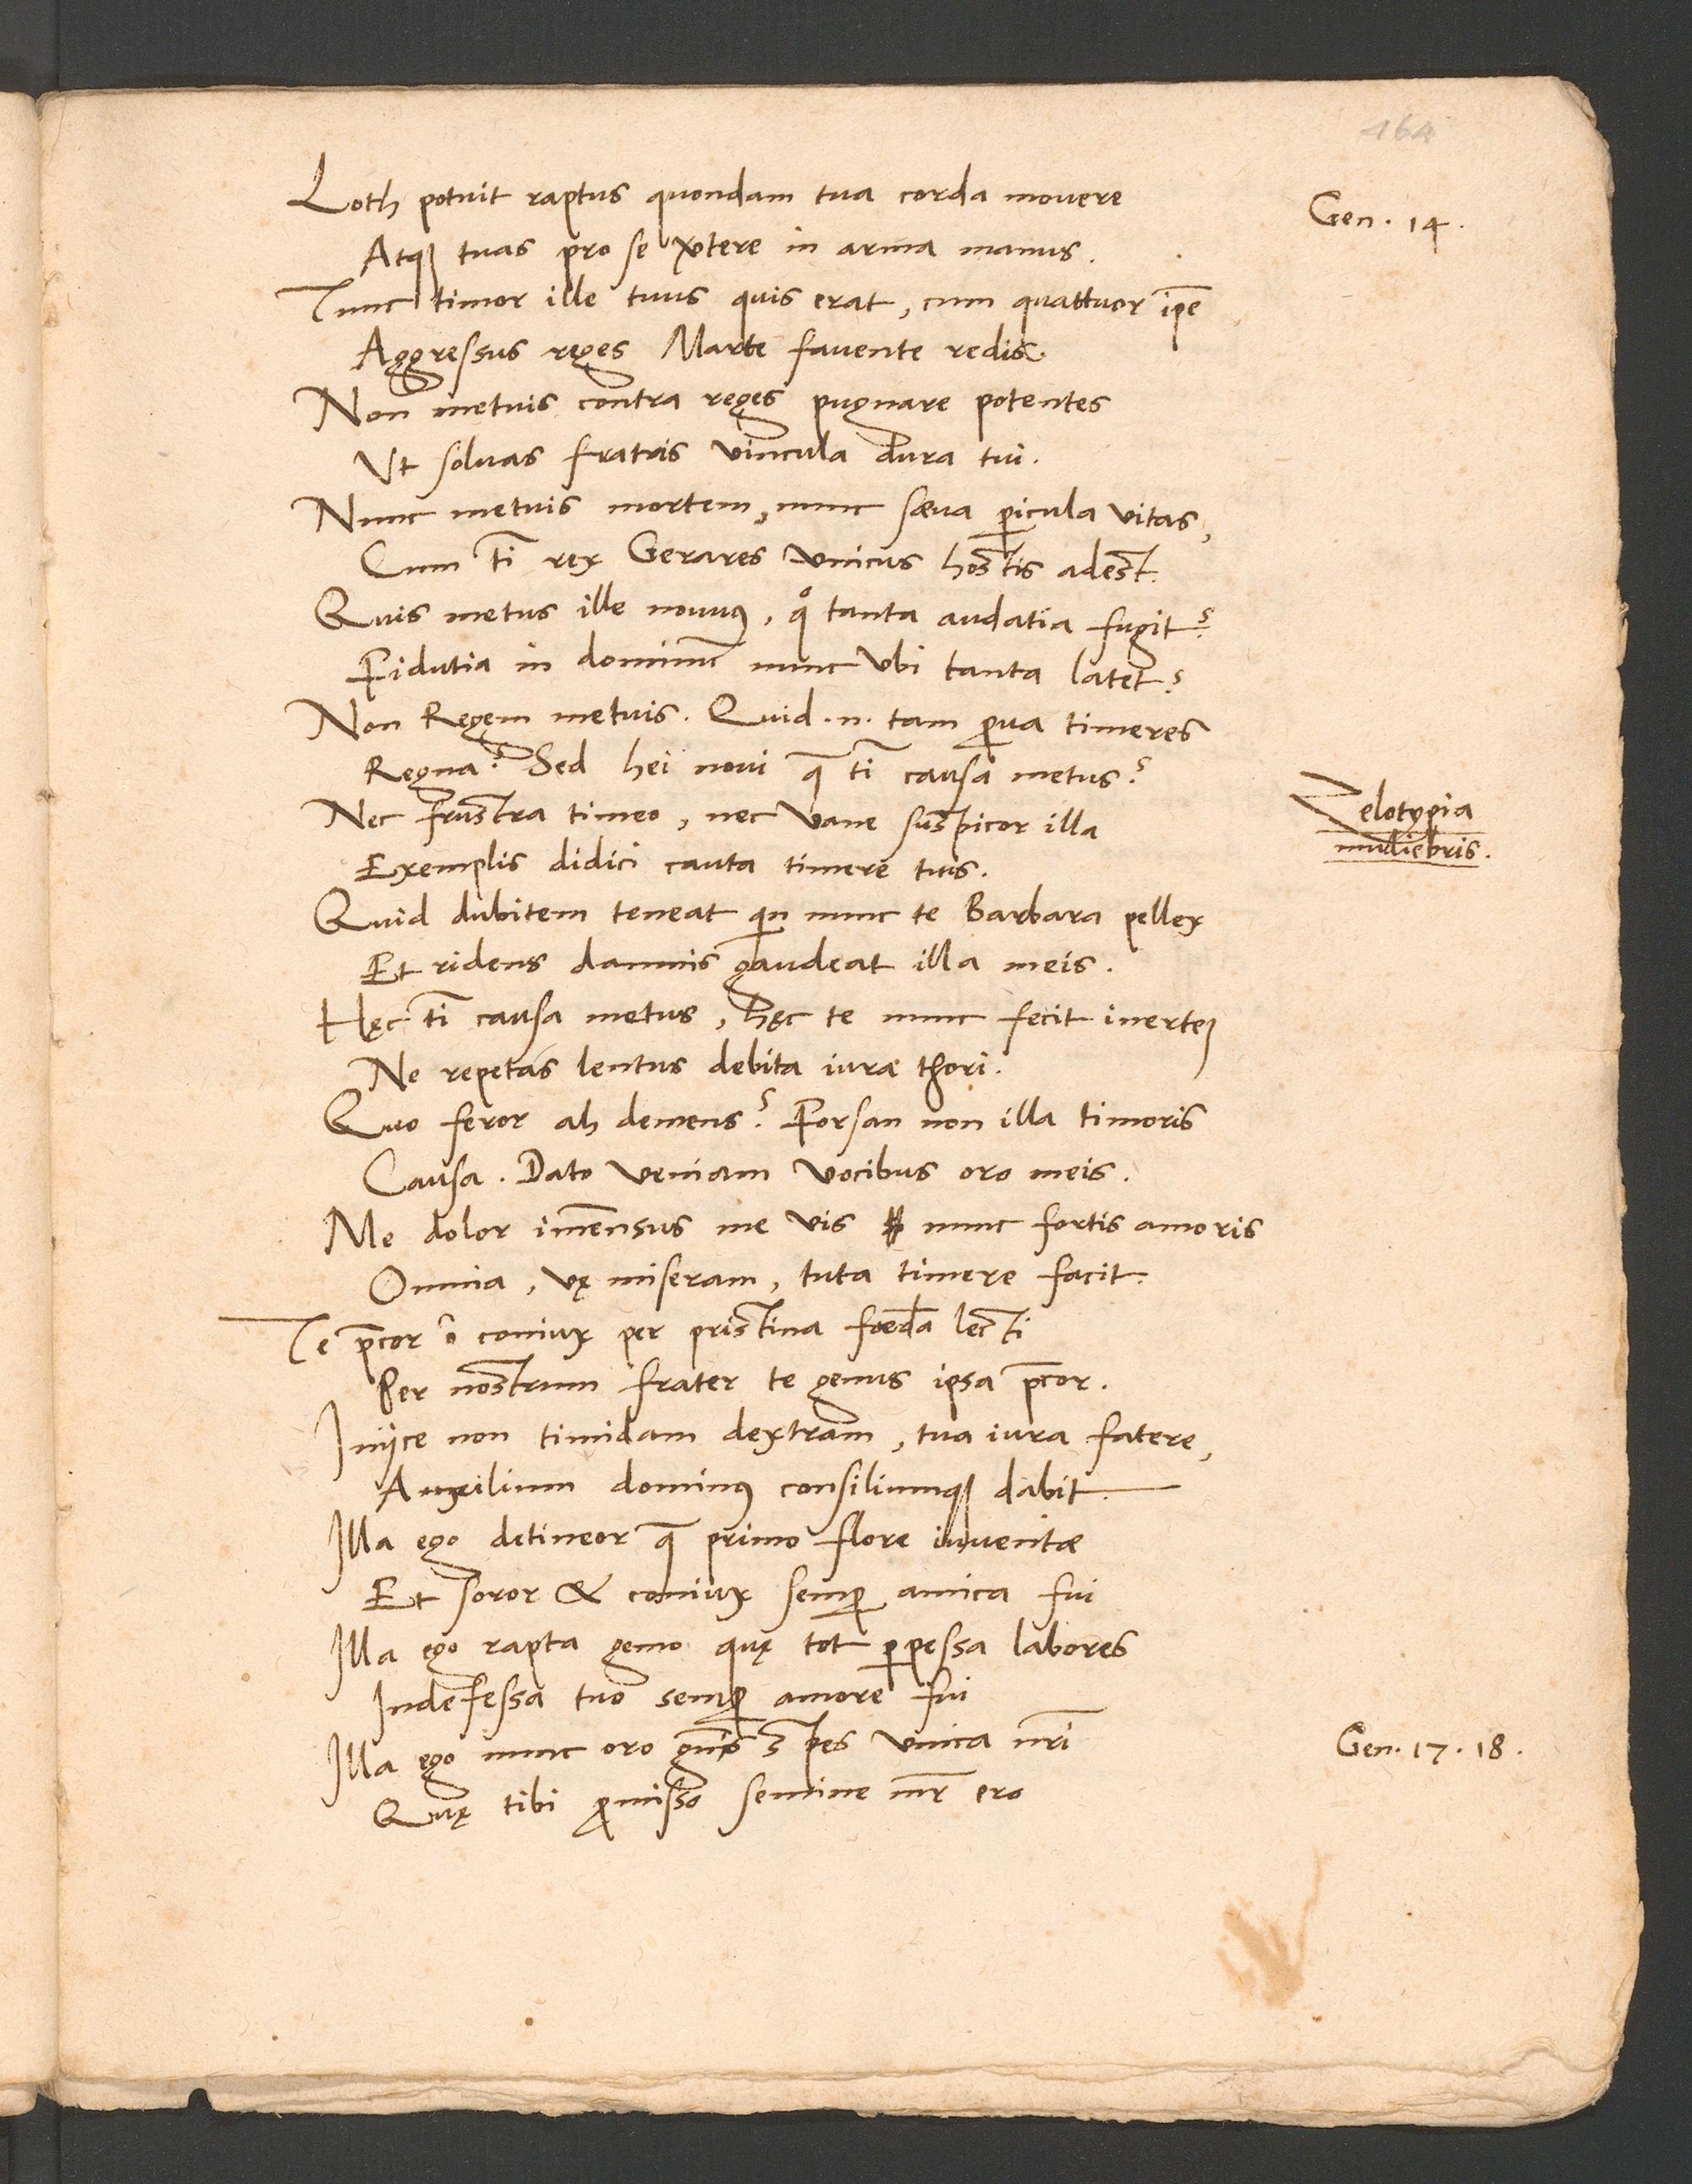 464
Loth potuit raptus quondam tua corda mouere
Gen. 14.
Atq₃ tuas pro se v̄tere in arma manus.
Tunc timor ille tuus quis erat, cum quattuor ip̄e
Aggressus reges Marte fauente redis.
Non metuis contra reges pugnare potentes
Vt soluas fratris vincula dura tui.
Nunc metuis mortem, nunc sæua ꝑicula vitas,
Cum ti rex Gerares vnicus hostis adest.
Quis metus ille nouus, qͦ tanta audatia fugit?
Fidutia in dominū nunc vbi tanta latet?
Non Regem metuis. Quid .n. tam ꝑua timeres
Regna? Sed hei noui q̄ ti causa metus?
Zelotypia
muliebris.
Nec frustra timeo, nec vane suspicor illa
Exemplis didici cauta timere tuis.
Quid dubitem teneat qin nunc te Barbara pellex
Et ridens damnis gaudeat illa meis.
Hęc ti causa metus, hęc te nunc fecit inertem
Ne repetas lentus debita iura thori.
Quo feror ah demens? Forsan non illa timoris
Causa. Dato veniam vocibus oro meis.
Me dolor imēnsus me vis nunc fortis amoris
Omnia, vę miseram, tuta timere facit.
Te p̄cor ô coniux per pristina foedᵃa lecti
Per nostrum frater te genus ipsa p̄cor.
Iniice non timidam dextram, tua iura fatere,
Auxilium dominus consiliumq₃ dabit.
Illa ego detineor q̄ primo flore iuuentæ
Et soror & coniux semꝑ amica fui
Illa ego rapta gemo quę tot ꝑpessa labores
Indefessa tuo semꝑ amore fui
Illa ego nunc oro gn̄is spes vnica nr̄i
Gen. 17. 18.
Quę tibi ꝓmisso semine mr̄ ero